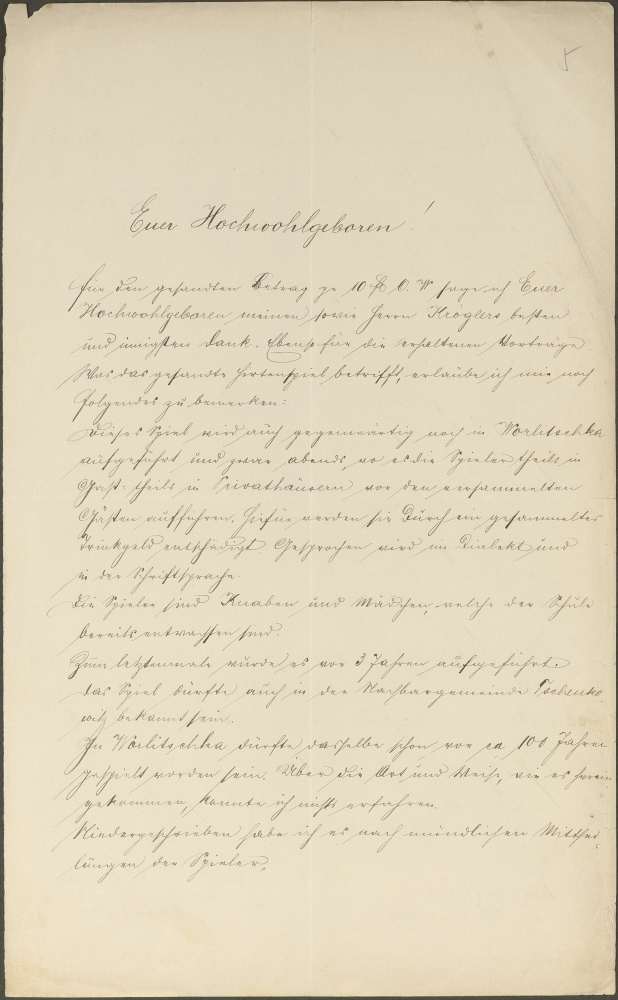 5
Euer Hochwohlgeboren!
Für den gesandten Betrag zu 10 fl. Ö. W sage ich Euer
Hochwohlgeboren meinen sowie Herrn Kröglers besten
und innigsten Dank. Ebenso für die erhaltenen Vorträge
Was das gesandte Hirtenspiel betrifft, erlaube ich mir noch
Folgendes zu bemerken:
Dieses Spiel wird auch gegenwärtig noch in Worlitschka
aufgeführt und zwar abends, wo es die Spieler theils in
Gast- theils in Privathäusern vor den versammelten
Gästen aufführen. Hiefür werden sie durch ein gesammeltes
Trinkgeld entschädigt. Gesprochen wird im Dialekt und
in der Schriftsprache.
Die Spieler sind Knaben und Mädchen, welche der Schule
bereits entwachsen sind.
Zum letztenmale wurde es vor 3 Jahren aufgeführt.
Das Spiel dürfte auch in der Nachbargemeinde Tschenko
witz bekannt sein.
In Worlitschka dürfte dasselbe schon vor ca 100 Jahren
gespielt worden sein. Über die Art und Weise, wie es herein
gekommen, konnte ich nichts erfahren.
Niedergeschrieben habe ich es nach mündlichen Mitthei
lungen der Spieler.